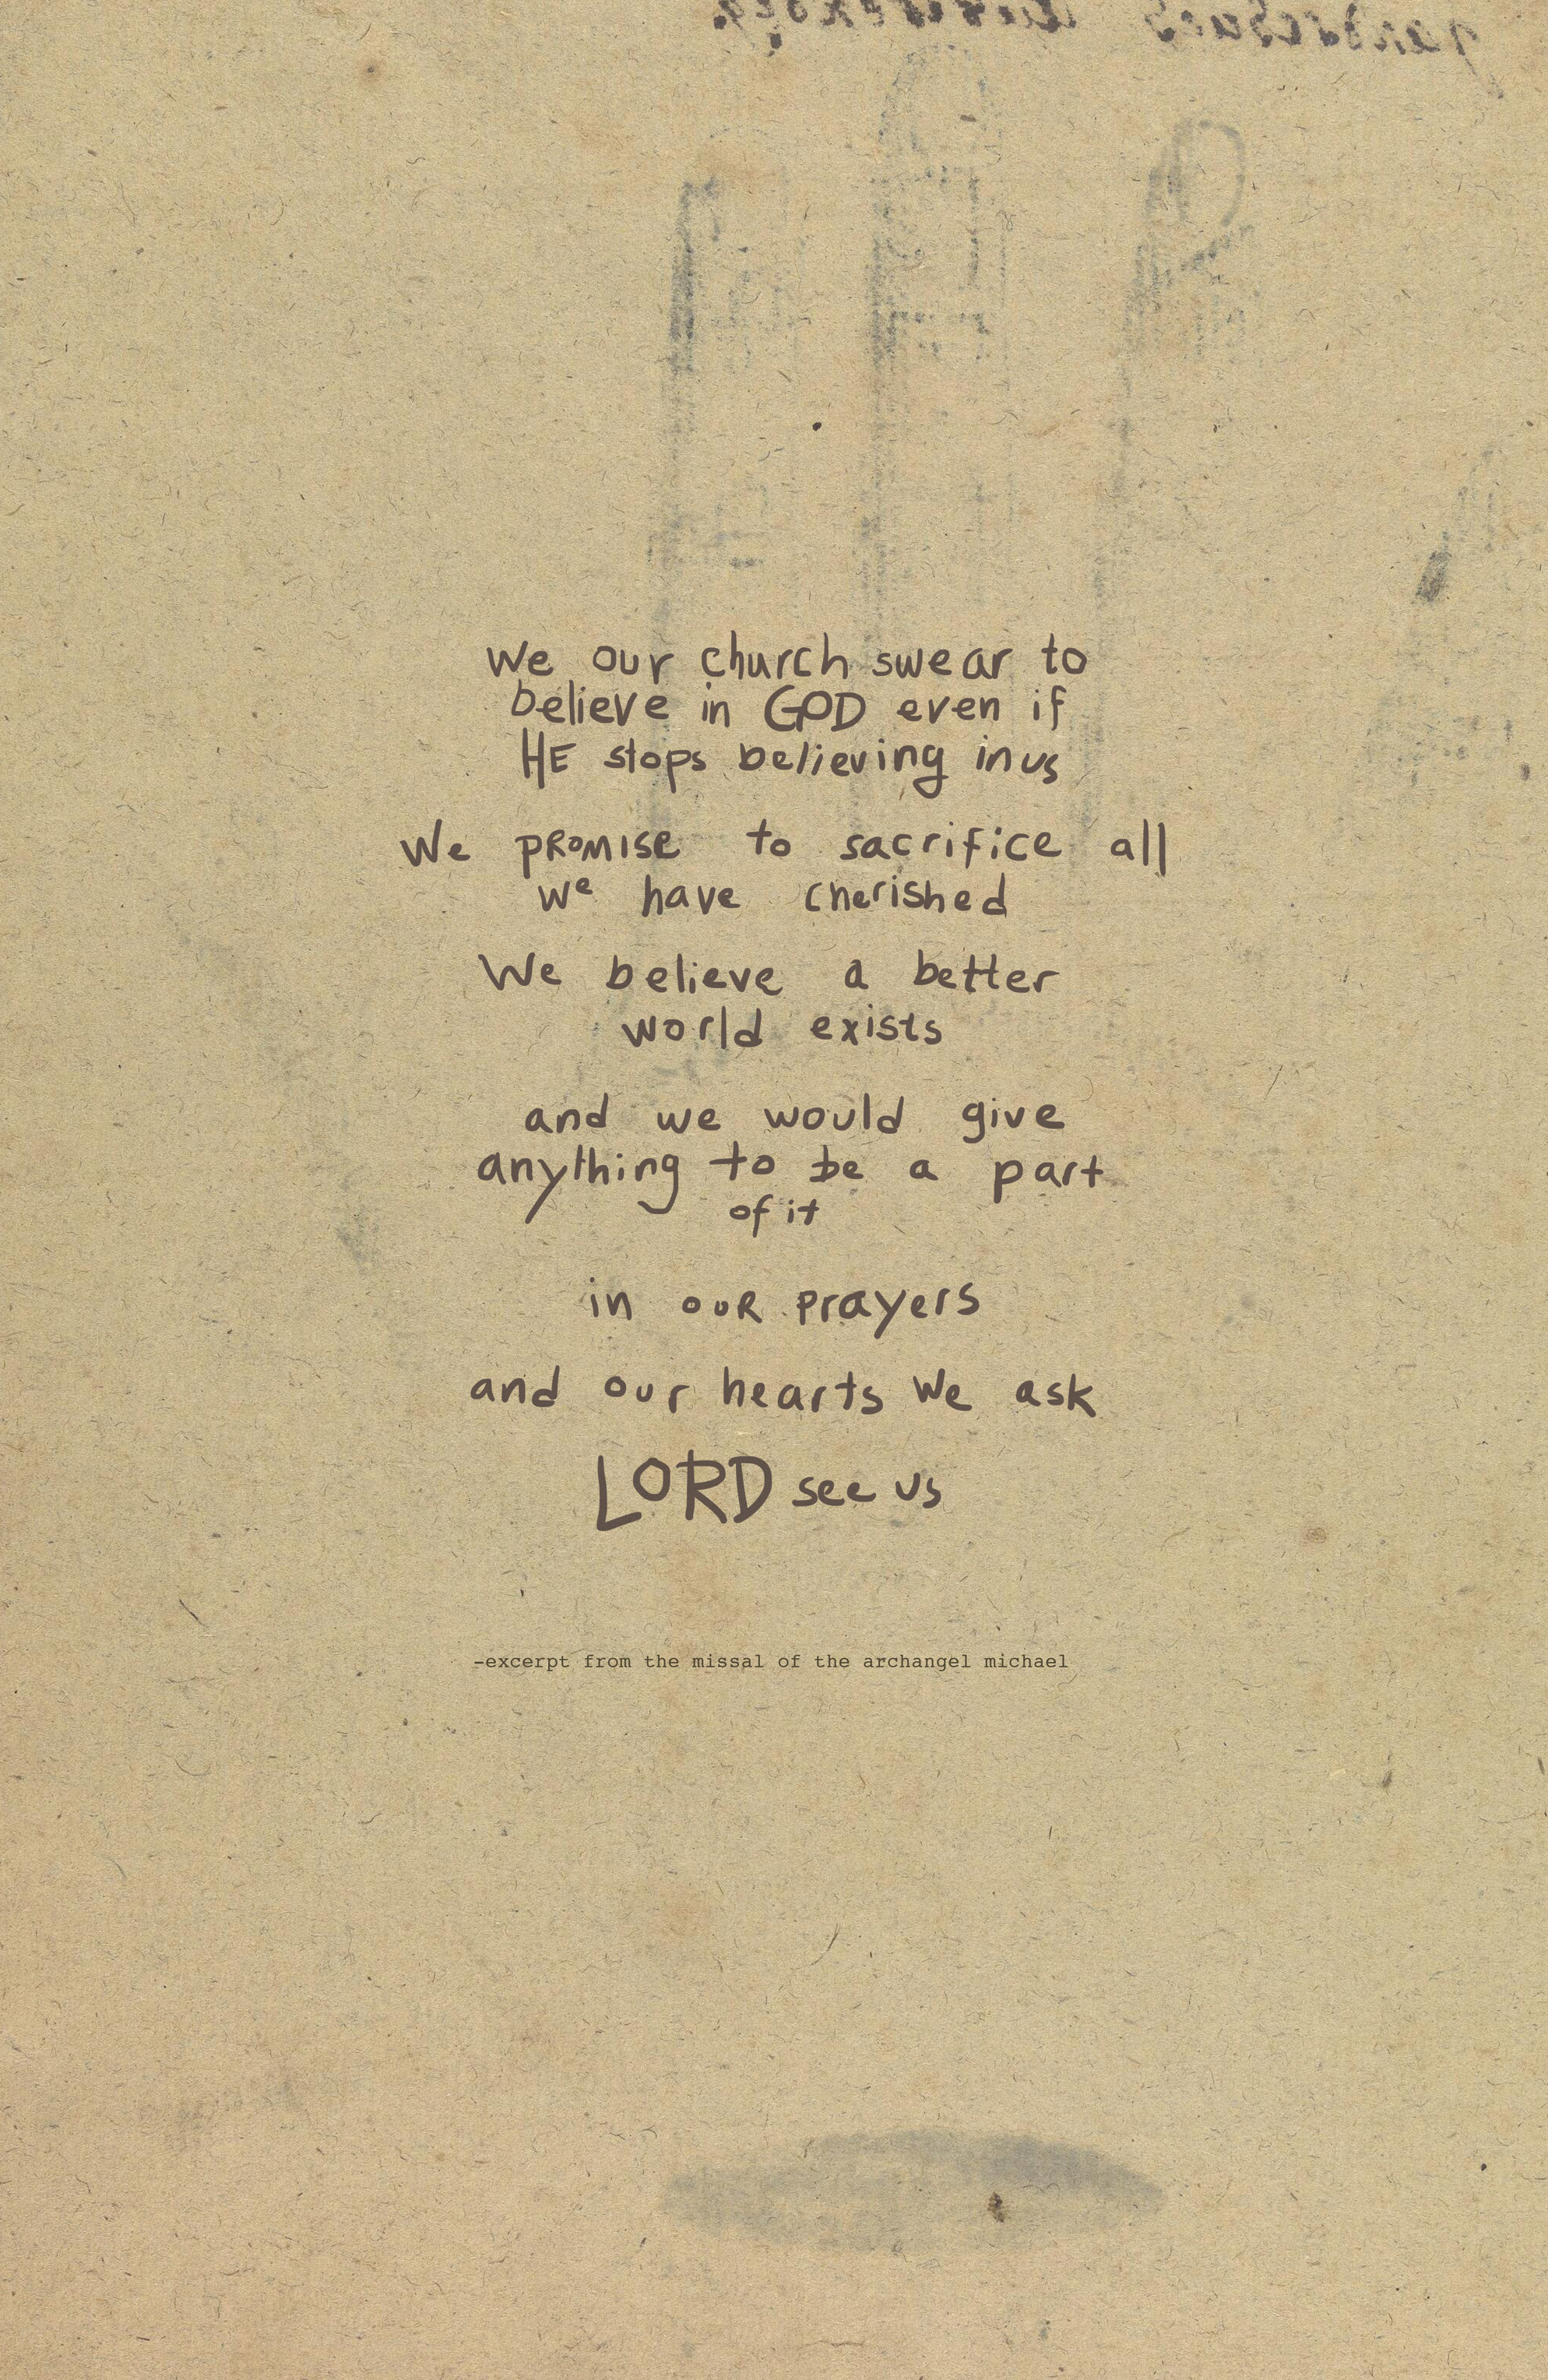 we our church swear to
believe in GOD even if
HE stops believing in us
We PROMISE to sacrifice all
we have cherished
We believe a better
world exists
and we would give
anything to be a part
of it
in OUR prayers
and our hearts we ask
LORD see us
-excerpt from the missal of the archangel michael